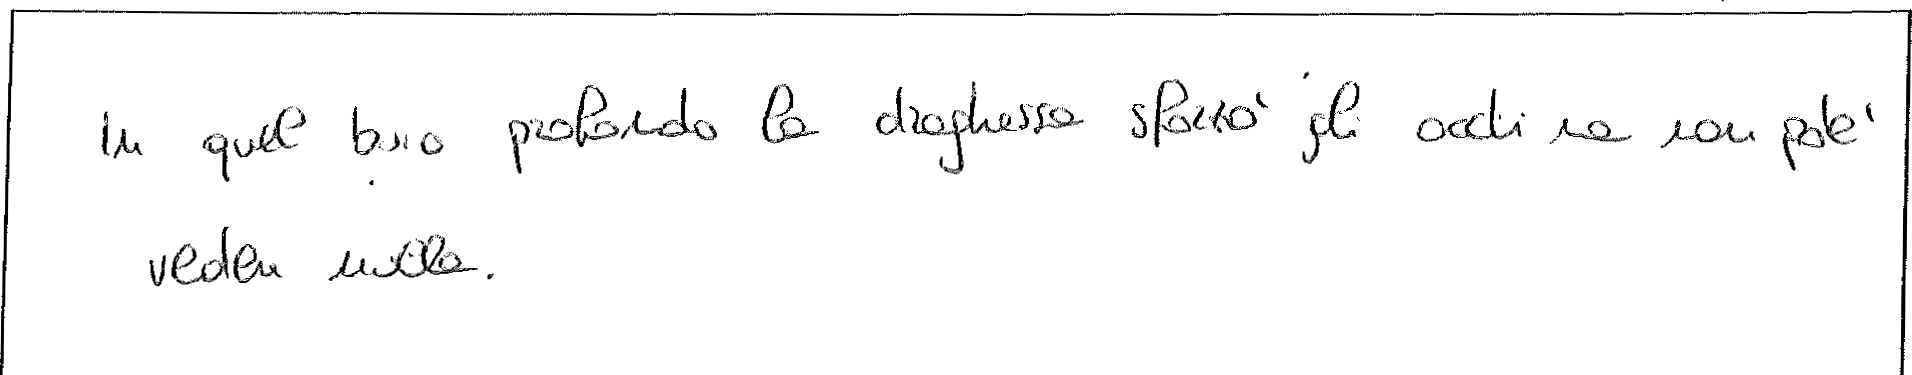 In quel buio profondo la draghessa sforzò gli occhi ma non poté
veder nulla.